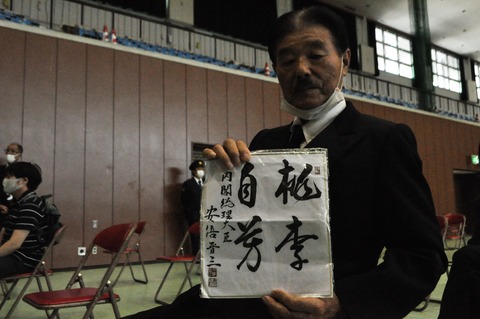 桃李
自芳
内閣総理大臣
安倍晋三